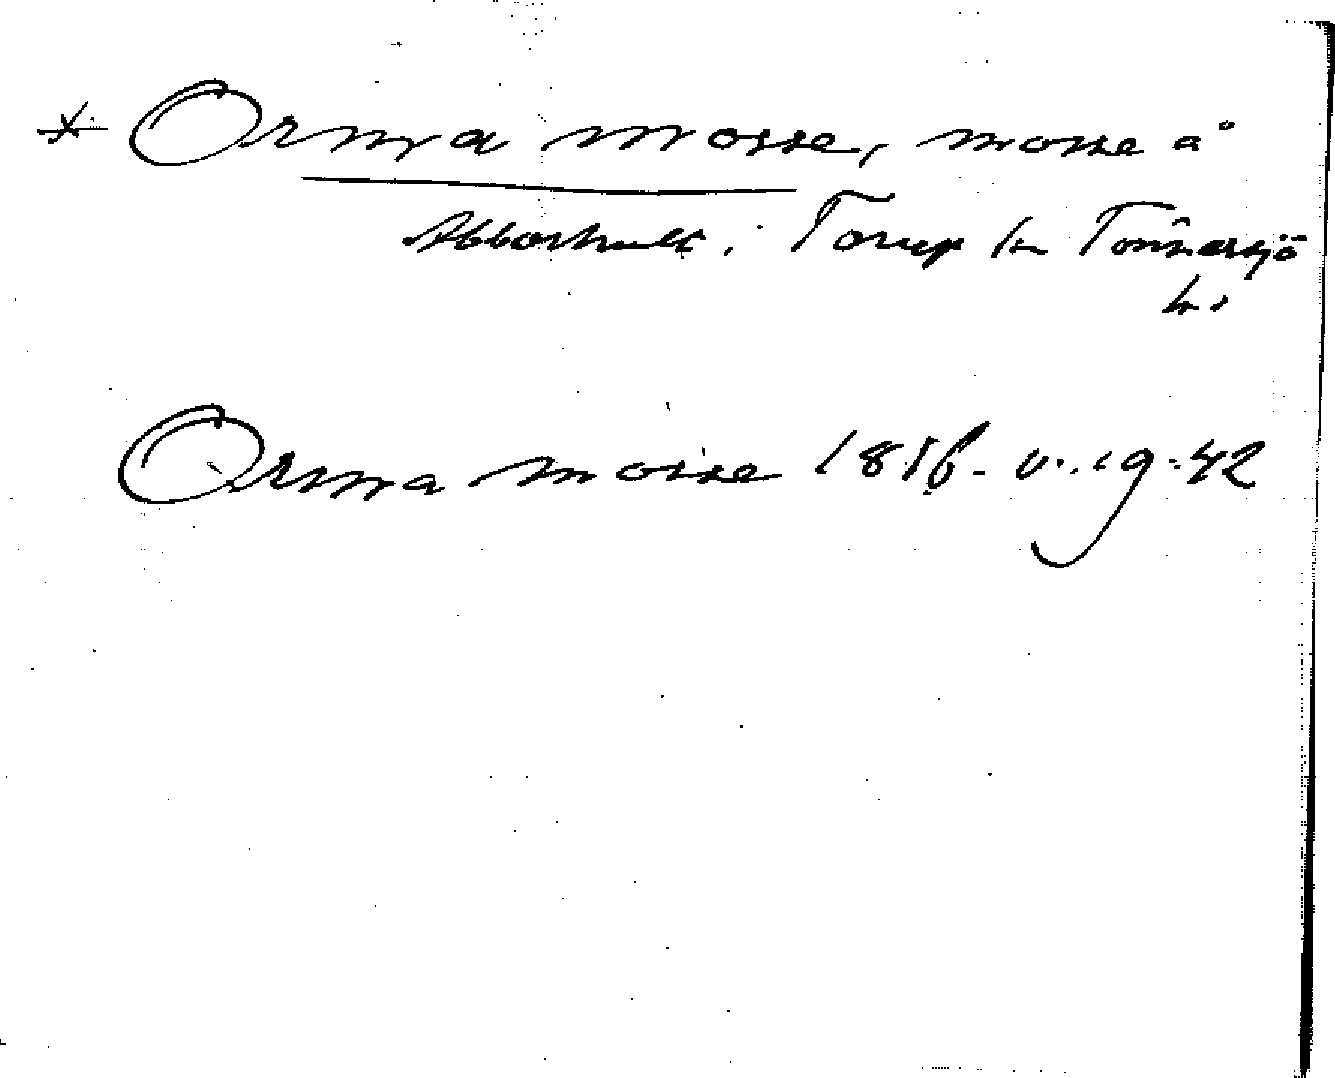 * Ormya mosse, mosse å
Abborhult, Torup sn Tönnersjö
h.
Ormya mosse 1856. v. 19. 42